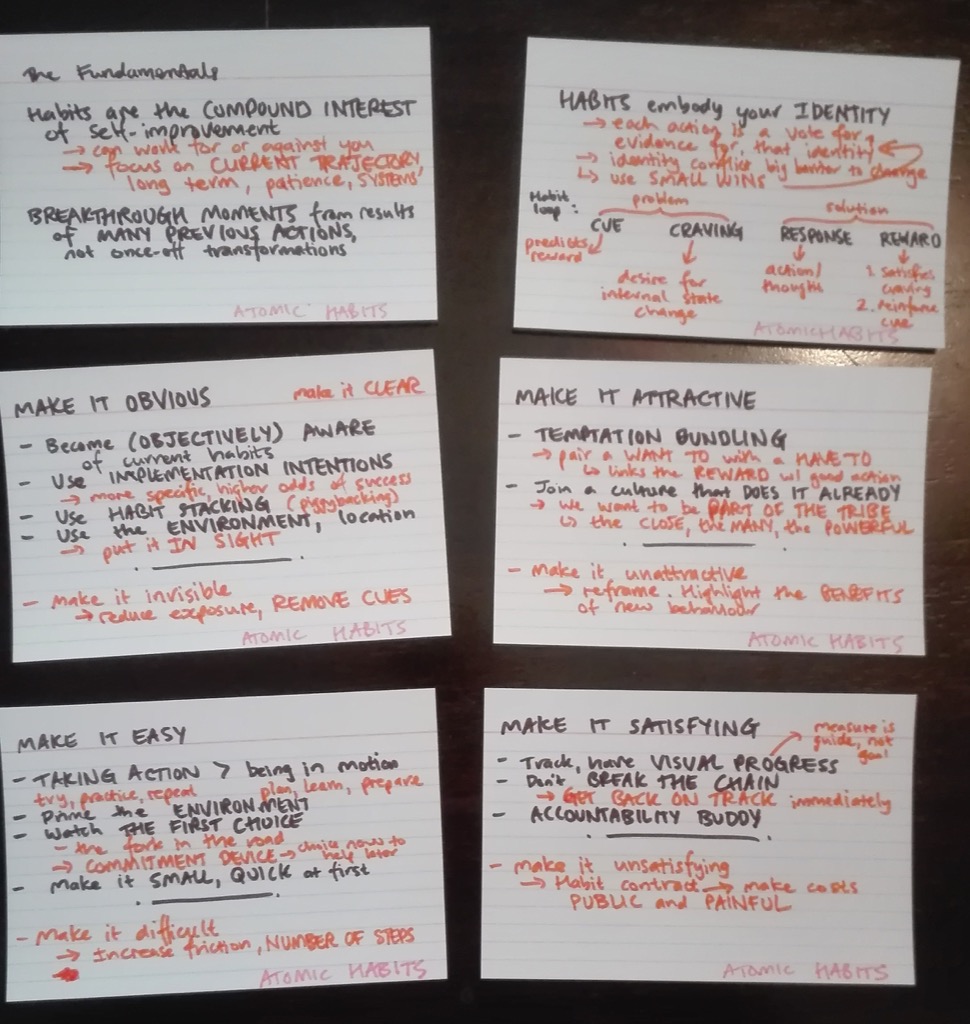 The Fundamentals
Habits are the COMPOUND INTEREST
of self-improvement
→ can work for or against you
→ focus on CURRENT TRAJECTORY,
long term, patience, SYSTEMS
BREAKTHROUGH MOMENTS from results
of MANY PREVIOUS ACTIONS,
not once-off transformations
ATOMIC HABITS
HABITS embody your IDENTITY
→ each action is a vote for,
evidence for, that identity
→ identity conflict big barrier to change
↳ use SMALL WINS
Habit loop:
problem
solution
CUE CRAVING RESPONSE REWARD
predicts reward
desire for
internal state
change
action/
thought
1. satisfies
craving
2. reinforce
cue
ATOMIC HABITS
MAKE IT OBVIOUS make it CLEAR
- Become (OBJECTIVELY) AWARE
of current habits
- Use IMPLEMENTATION INTENTIONS
→ more specific, higher odds of success
- Use HABIT STACKING (piggybacking)
- Use the ENVIRONMENT, location
→ put it IN SIGHT
- Make it invisible
→ reduce exposure, REMOVE CUES
ATOMIC HABITS
MAKE IT ATTRACTIVE
- TEMPTATION BUNDLING
→ pair a WANT TO with a HAVE TO
↳ links the REWARD w/ good action
- Join a culture that DOES IT ALREADY
→ we want to be PART OF THE TRIBE
↳ the CLOSE, the MANY, the POWERFUL
- Make it unattractive
→ reframe. Highlight the BENEFITS
of new behaviour
ATOMIC HABITS
MAKE IT EASY
- TAKING ACTION > being in motion
try, practice, repeat plan, learn, prepare
- Prime the ENVIRONMENT
- Watch THE FIRST CHOICE
- the fork in the road
→ COMMITMENT DEVICE → choice now to
help later
- Make it SMALL, QUICK at first
- Make it difficult
→ Increase friction, NUMBER OF STEPS
ATOMIC HABITS
MAKE IT SATISFYING
measure is
guide, not
goal
- Track, have VISUAL PROGRESS
- Don't BREAK THE CHAIN
→ GET BACK ON TRACK immediately
- ACCOUNTABILITY BUDDY
- make it unsatisfying
→ Habit contract → make costs
PUBLIC and PAINFUL
ATOMIC HABITS